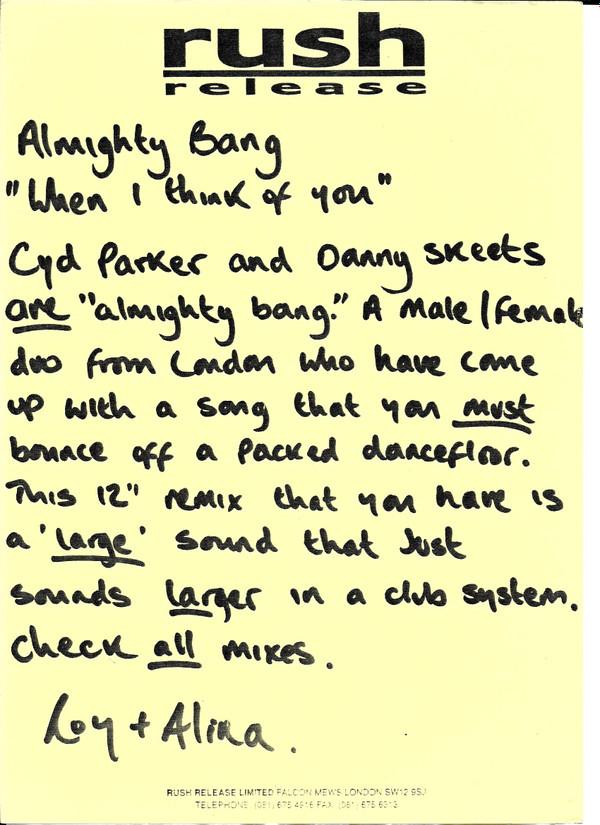 rush
release
Almighty Bang
"When I think of you"
Cyd Parker and Danny Skeets
are "almighty bang." A male/female
duo from London who have come
up with a song that you must
bounce off a packed dancefloor.
This 12" remix that you have is
a 'large' sound that just
sounds larger in a club system.
Check all mixes.
Loy + Alina.
RUSH RELEASE LIMITED FALCON MEWS LONDON SW12 9SJ
TELEPHONE (081) 675 4916 FAX (081) 675 6313